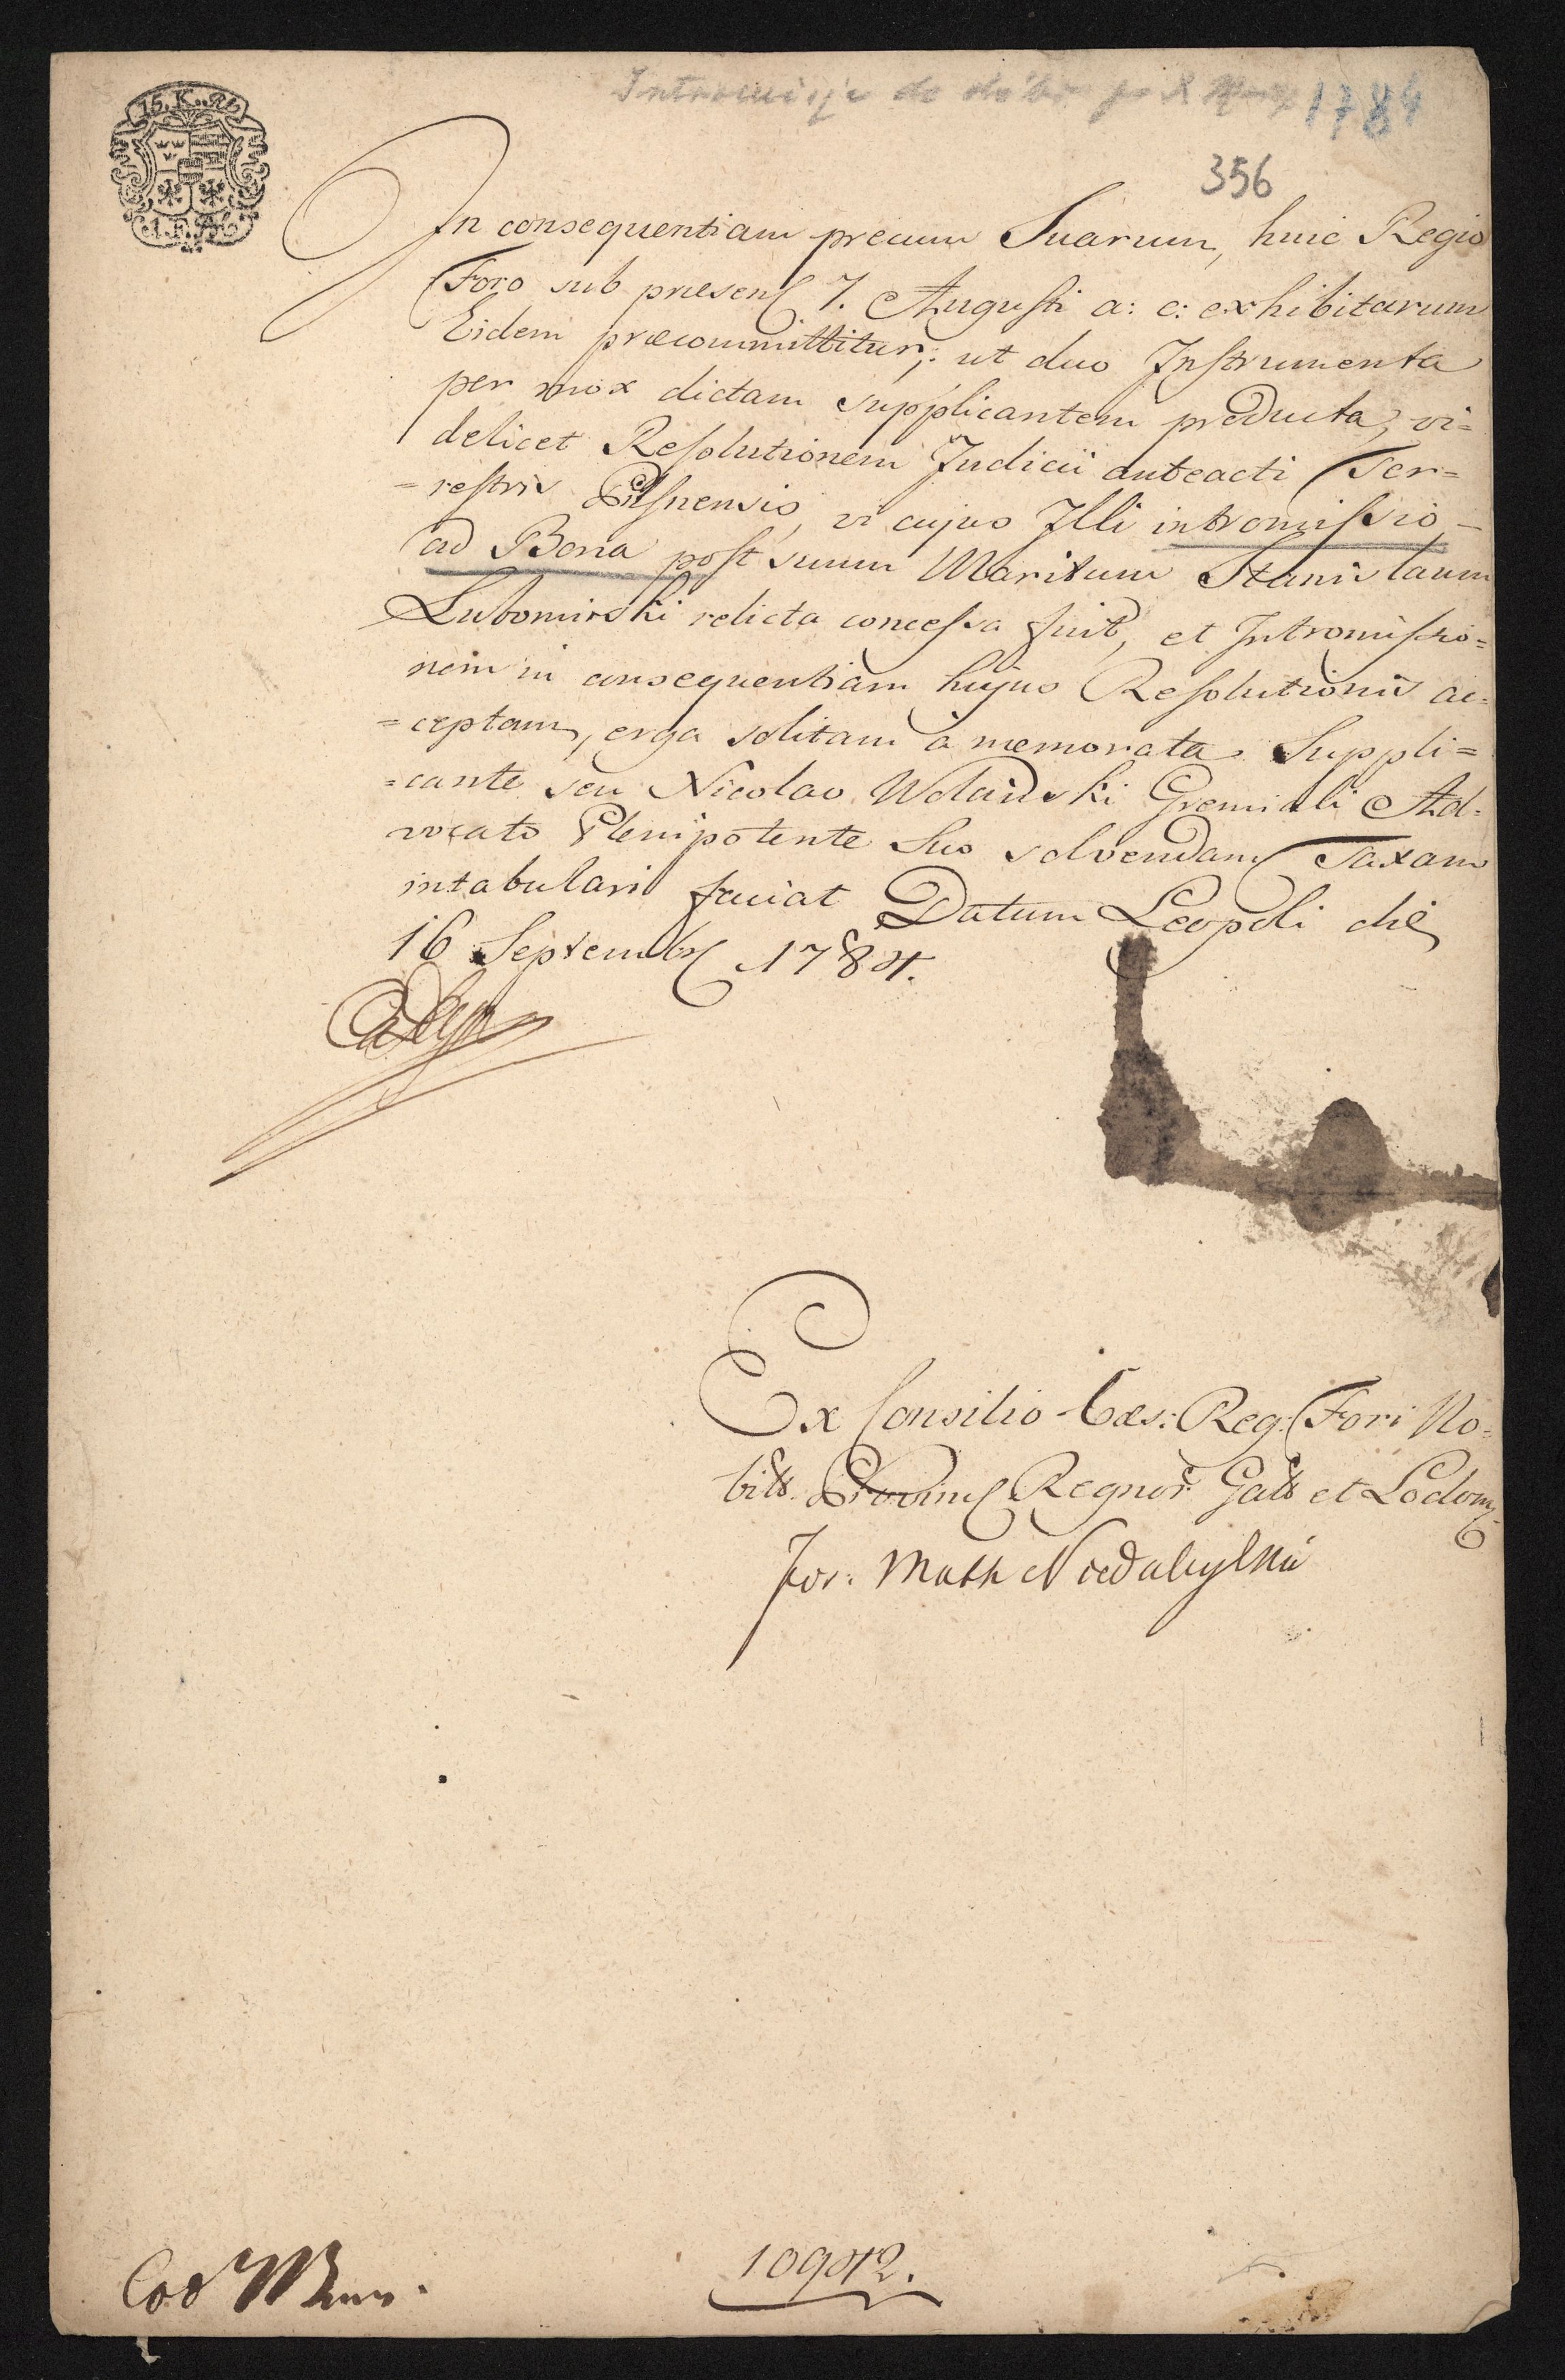 15. K. R.
Intromisja do dóbr po 1784
356
In consequentiam precum Suarum, huic Regio
Foro sub præsen 7. Augusti a: c: exhibitarum
Eidem præcommittitur; ut duo Instrumenta
per mox dictam supplicantem producta, vi=
delicet Resolutionem Judicii anteacti Ter=
=restris Pilsnensis, vi cujus Illi intromissio
ad Bona post suum Maritum Stanislaum
Lubomirski relicta concessa fuit, et Intromissio=
nem in consequentiam hujus Resolutionis ac=
=ceptam, erga solitam a memorata Suppli=
=cante seu Nicolao Wolański Gremiali Ad=
vocato Plenipotente Suo solvendam Taxam
intabulari faciat Datum Leopoli die
16 Septemb 1784.
Ex Consilio Cæs: Reg: Fori No=
bil. Provinc Regnor Gal et Lodom
Jos: Math
10942.